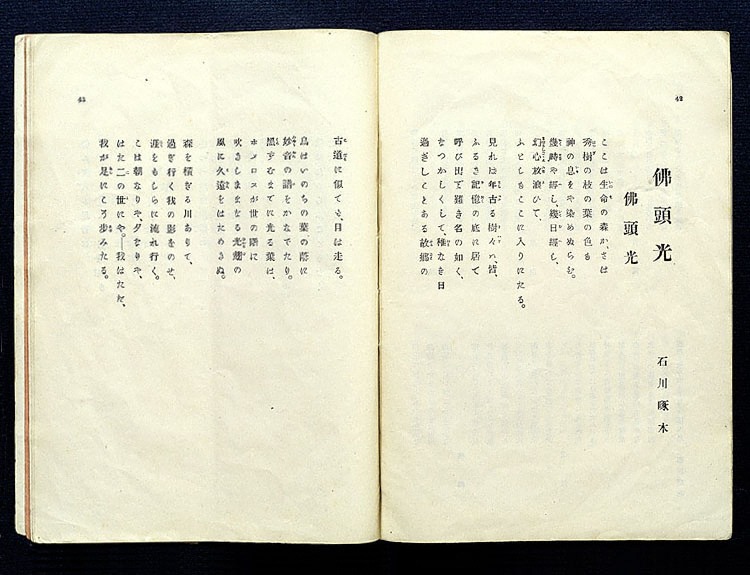 42
佛頭光
石川啄木
佛頭光
ここは生命の森か、さは
秀樹の枝の葉の色も
神の息をや染めぬらむ。
幾時や經し、幾日經し、
幻心放浪ひて、
ふとしもここに入りにたる。
見れば年古る樹々の、皆、
ふるき記憶の底に居て
呼び出で難き名の如く、
なつかしくして、稚なき日
過ぎしことある故郷の
43
古道に似ても、日は走る。
鳥はいのちの葉の蔭に
妙音の譜をかなでたり。
黑ずむまでに光る葉は、
吹きしままなる光趨の
風に久遠をはためきぬ。
森を横ぎる川ありて、
過ぎ行く我の影をのせ、
涯をもしらに流れ行く。
こは朝なりや、夕なりや、
はた二の世にや。――我はただ、
我が足にこそ歩みたる。